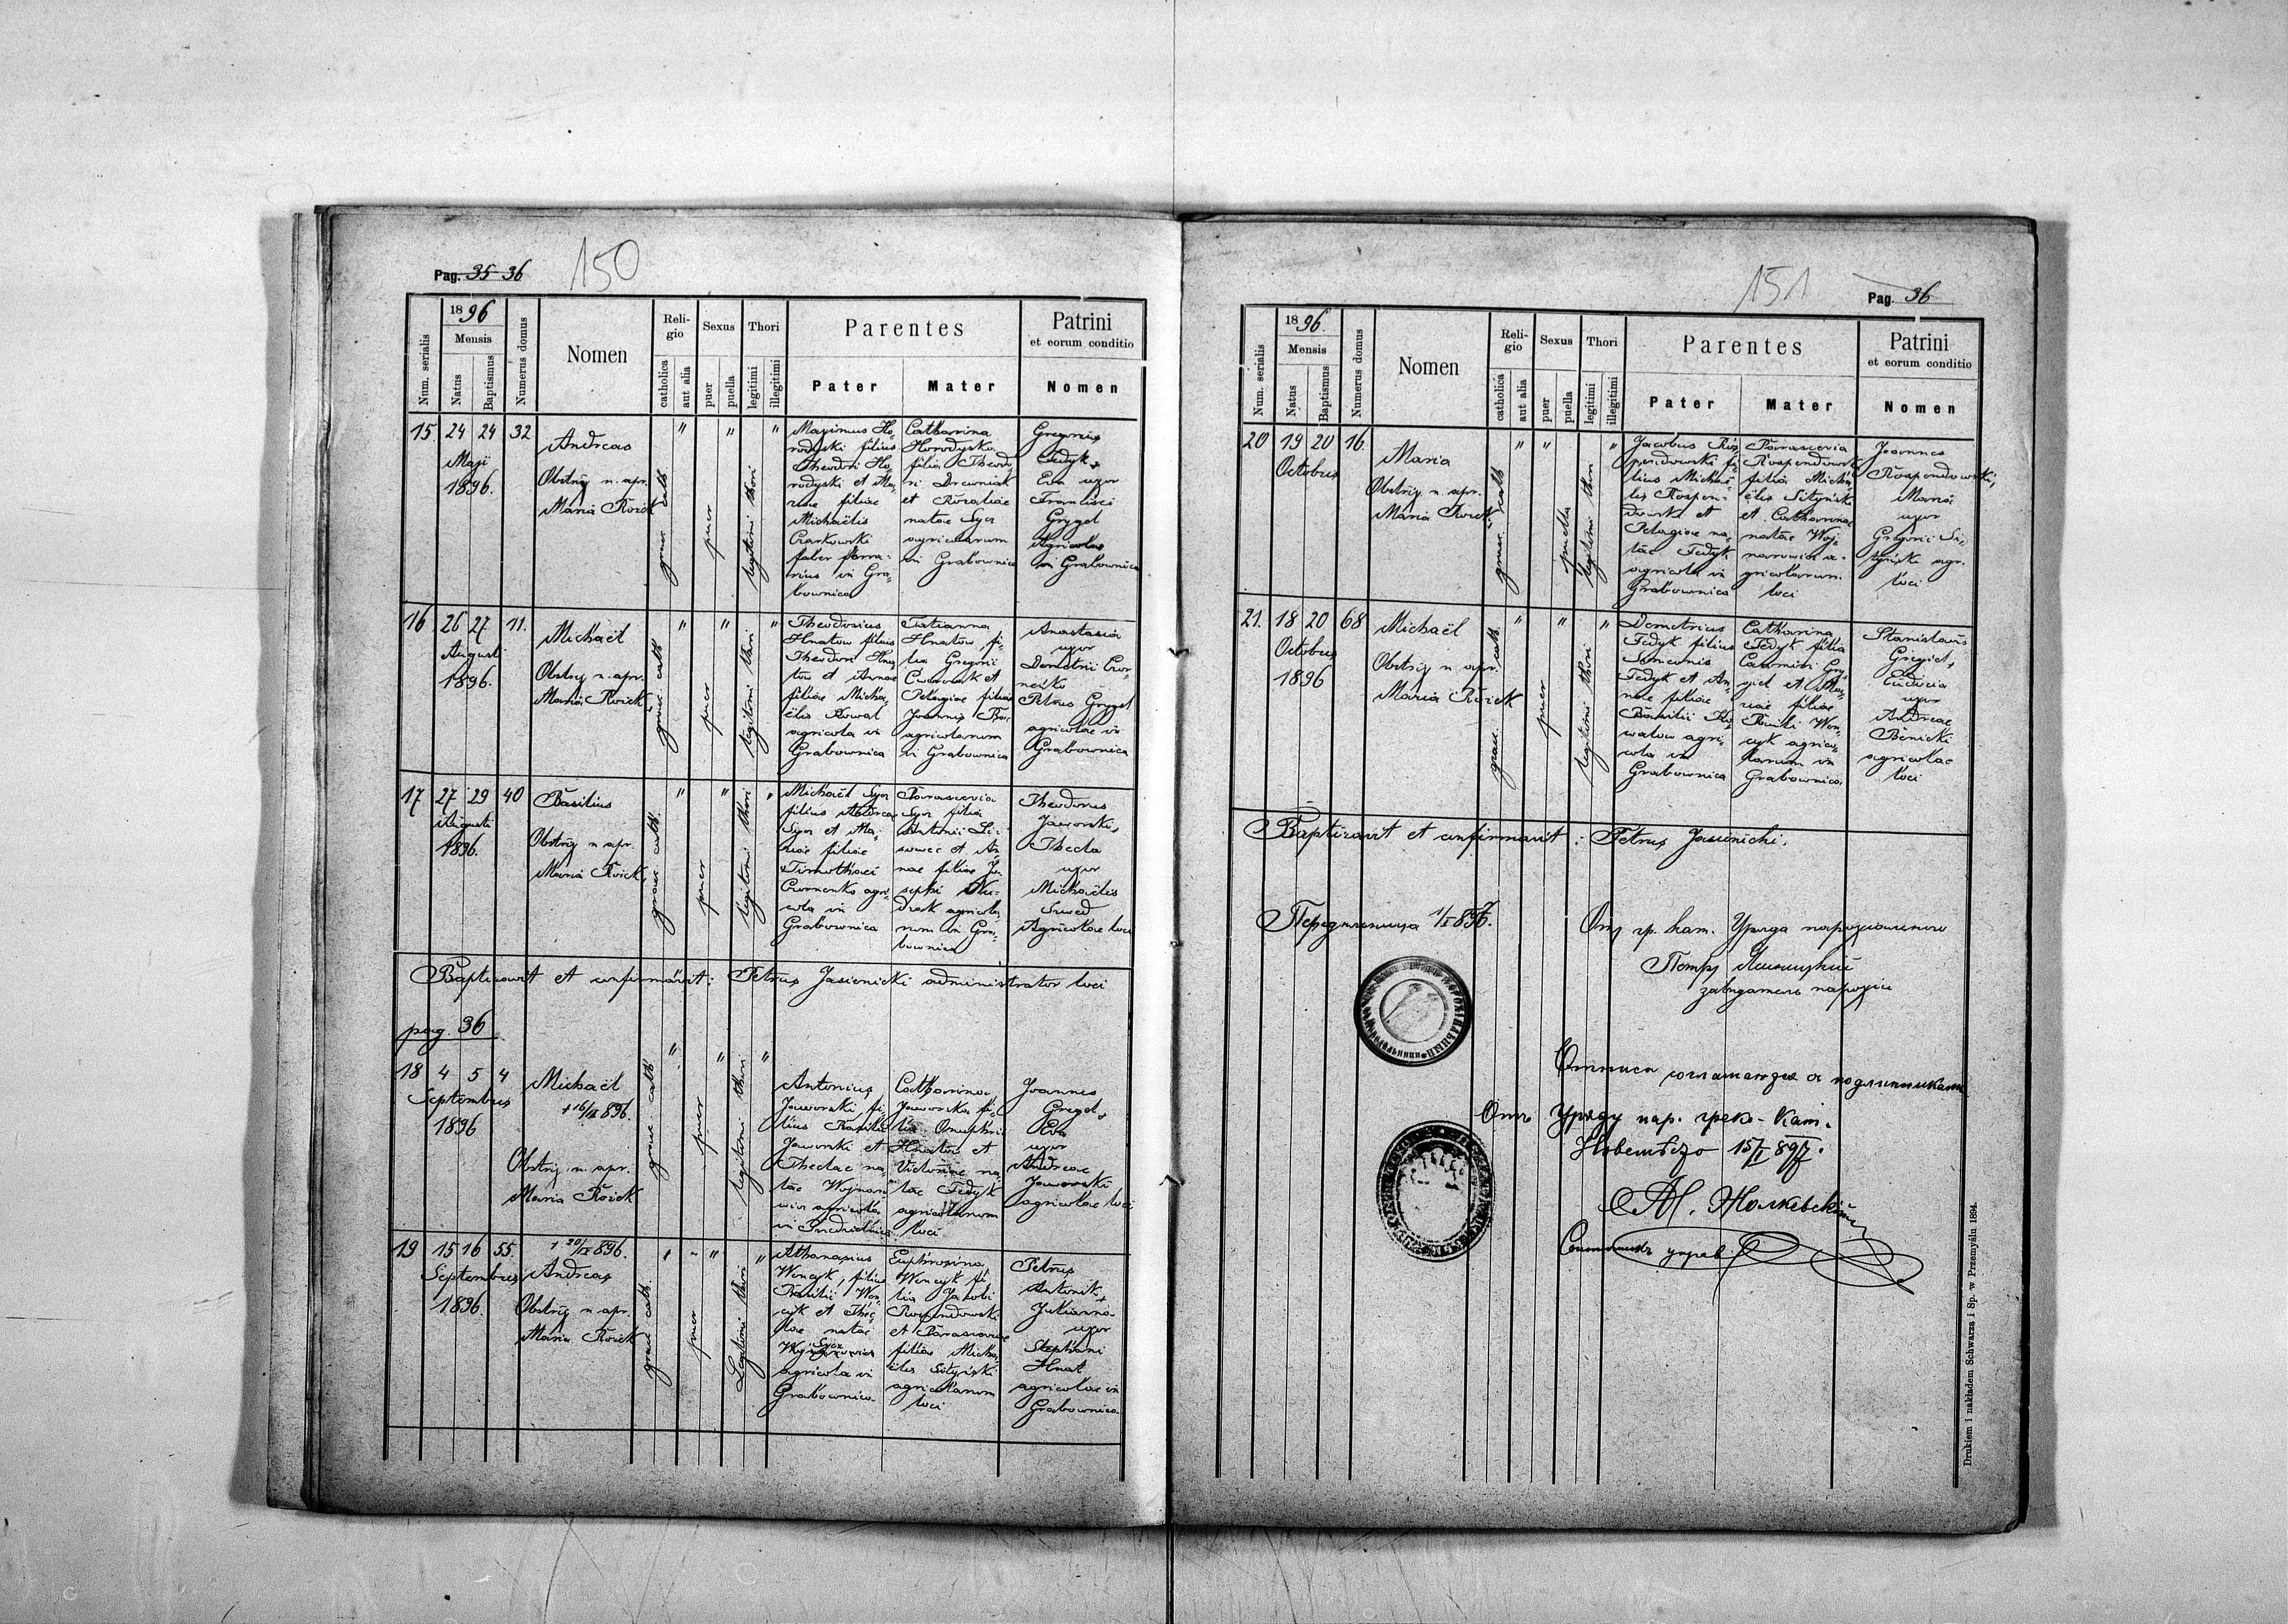 Pag. 35-36
150
1896
Mensis
Num. serialis
Natus
Baptismus
Numerus domus
Nomen
Religio
catholica
aut alia
Sexus
puer
puella
Thori
legitimi
illegitimi
Parentes
Pater
Mater
Patrini
et eorum conditio
Nomen
15 24 24 32
Maji
1896.
Andreas
Obstrix n. apr.
Maria
graec cath
puer
legitimi thori
Maximus Ho-
rodyski filius
Theodori Ho-
rodyski et Ma-
riae filiae
Michaëlis
Czarkowski
faber ferra-
rius in Gra-
bownica
Catharina
Horodyska
filia Theodo-
ri Drewniak
et Rozaliae
natae Sycz
agricolarum
in Grabownica
Gregorius
Fedyk
Eva uxor
Francisci
Grygel
Agricolae
in Grabownica
16 26 27 11.
Augusti
1896.
Michaël
Obstrix n. apr.
Maria
graec cath
puer
legitimi thori
Theodosius
Hnatów filius
Theodori Hna-
tów et Annae
filiae Micha-
ëlis Kowal
agricola in
Grabownica
Tatianna
Hnatów fi-
lia Gregorii
et
Pelagiae filiae
Joannis
agricolarum
in Grabownica
Anastasia
uxor
Demetrii
Petrus Grygel
agricolae in
Grabownica
17 27 29 40
Augusti
1896.
Basilius
Obstrix n. apr.
Maria
graec cath.
puer
legitimi thori
Michaël Sycz
filius Andreae
Sycz et Ma-
riae filiae
Timothaei
agri-
cola in
Grabownica
Parascevia
Sycz filia
Antonii
et An-
nae filiae Jo-
sephi
agricola-
rum in Gra-
bownica
Theodorus
Jaworski,
Thecla
uxor
Michaëlis
Szwed
Agricolae loci
Baptizavit et confirmavit: Petrus Jasienicki administrator loci
pag. 36
18 4 5 4
Septembris
1896
Michaël
+ 16/IX 896.
Obstrix n. apr.
Maria
graec cath
puer
legitimi thori
Antonius
Jaworski fi-
lius Basilii
Jaworski et
Theclae na-
tae Wojnaro-
wicz agricola
in
Catharina
Jaworska fi-
lia Onuphrii
Hnatów et
Victoriae na-
tae Fedyk
agricolarum
loci
Joannes
Grygel
Eva
uxor
Andreae
Jaworski
agricolae loci
19 15 16 55
Septembris
1896
+ 20/IX 896.
Andreas
Obstrix n. apr.
Maria
graec cath.
puer
Legitimi thori
Athanasius
Wencyk, filius
Basilii Wen-
cyk et Thec-
lae natae
Sycz
agricola in
Grabownica
Euphrosina
Wencyk fi-
lia Jacobi
Rospondowski
et Parasceviae
filiae Micha-
ëlis Sityński
agricolarum
loci
Petrus
Antonik
Julianna
uxor
Stephani
Hnat
agricolae in
Grabownica
151
Pag. 36
1896.
Mensis
Num. serialis
Natus
Baptismus
Numerus domus
Nomen
Religio
catholica
aut alia
Sexus
puer
puella
Thori
legitimi
illegitimi
Parentes
Pater
Mater
Patrini
et eorum conditio
Nomen
20 19 20 16.
Octobris
Maria
Obstrix n. apr.
Maria
graec cath
puella
legitimi thori
Jacobus Ros-
pondowski fi-
lius Michaë-
lis Rospon-
dowski et
Pelagiae na-
tae Fedyk
agricola in
Grabownica
Parascevia
Rospondowski
filia Micha-
ëlis Sityński
et Catharinae
natae Woj-
narowicz a-
gricolarum
loci
Joannes
Rospondowski,
Maria
uxor
Gregorii Si-
tyński agr.
loci
21. 18 20 68
Octobris
1896
Michaël
Obstrix n. apr.
Maria
graec. cath.
puer
legitimi thori
Demetrius
Fedyk filius
Simeonis
Fedyk et An-
nae filiae
Basilii Ko-
walów agri-
cola in
Grabownica
Catharina
Fedyk filia
Casimiri Gry-
giel et Ma-
riae filiae
Basilii Wen-
cyk agrico-
larum in
Grabownica
Stanislaus
Grygiel,
Ludvica
uxor
Andreae
Bënicki
agricolae
loci
Baptizavit et confirmavit: Petrus Jasienicki.
1/I 897.
Отъ гр. кат. Уряда парохіяльного
Петръ Ясѣницкій
завѣдатель парохіи
Отписи согласаются съ подлинниками
Отъ Уряду пар. греко-кат.
15/I 897.
Drukiem i nakładem Schwarza i Sp. w Przemyślu 1894.